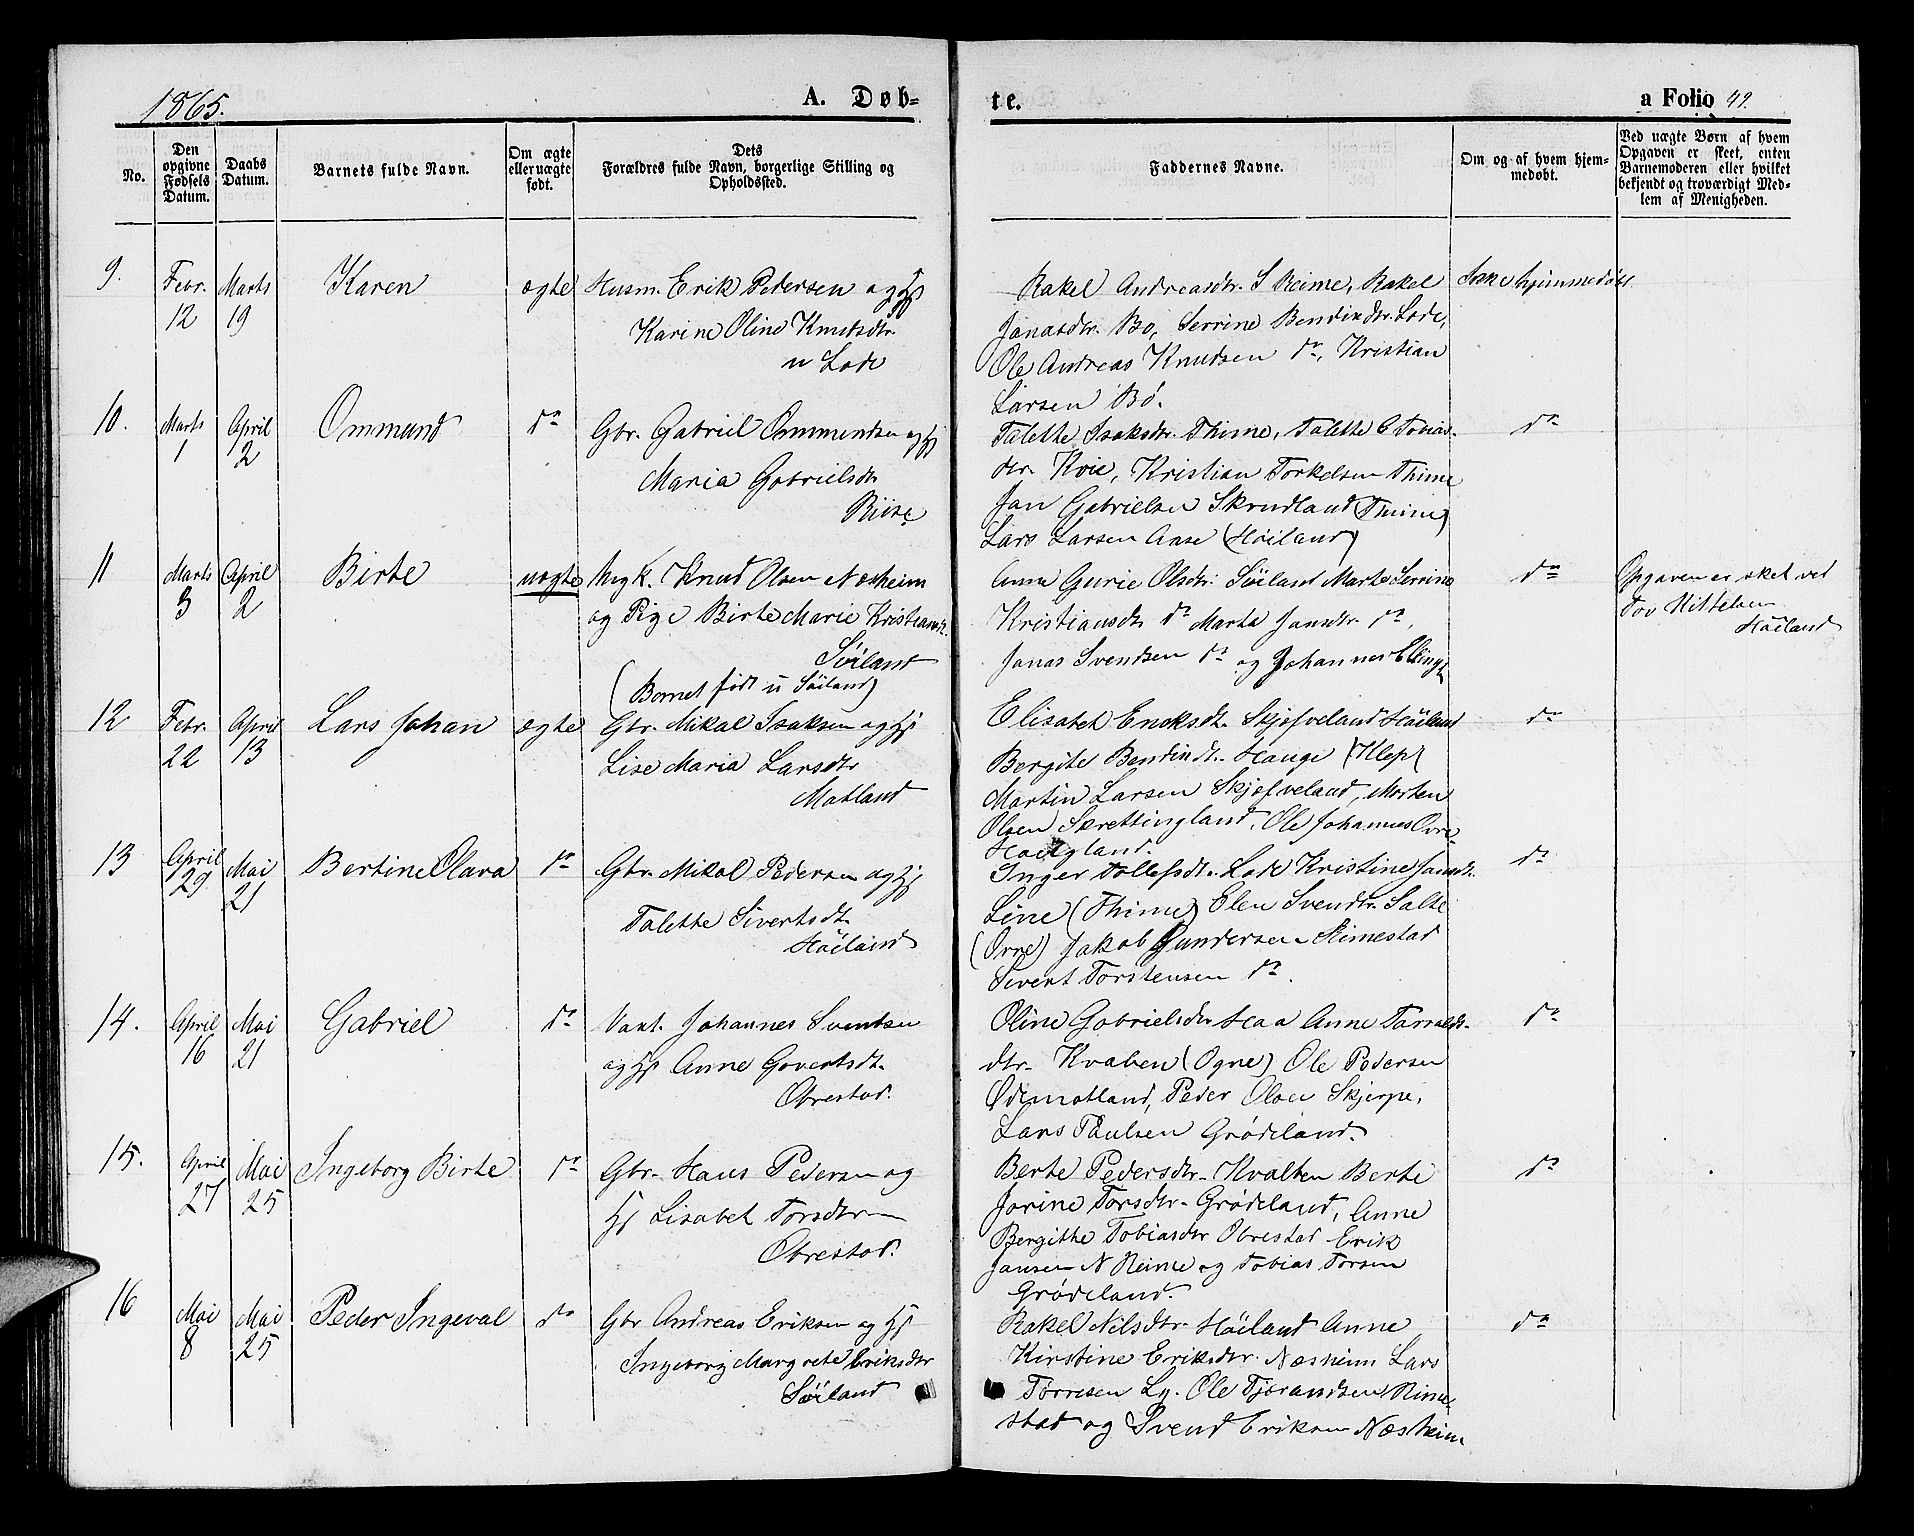 1865.
A. Døb-
te.
a Folio 49.
No.
Den
opgivne
Fødsels
Datum.
Daabs
Datum.
Barnets fulde Navn.
Om ægte
eller uægte
født.
Dets
Forældres fulde Navn, borgerlige Stilling og
Opholdssted.
Faddernes Navne.
Om og af hvem hjem-
medøbt.
Ved uægte Børn af hvem
Opgaven er skeet, enten
Barnemoderen eller hvilket
bekjendt og troværdigt Med-
lem af Menigheden.
9. Febr. 12 Marts 19 Karen ægte Husm. Erik Pedersen og Hj
Karine Oline Knutsdtr.
n Lode
Rakel Andreasdtr. S Reime, Rakel
Jonasdtr. Bo, Serrine Bendixdtr. Lode,
Ole Andreas Knudsen do, Kristian
Larsen Bø.
Ikke hjemmedøbt
10. Marts 1 April 2 Ommund do Gbr. Gabriel Ommundsen og Hj
Maria Gabrielsdtr
Riise
Talette Isaksdtr. Thime, Talette C Tobias-
dtr. Kvie, Kristian Torkelsen Thime
Jan Gabrielsen Skrudland (Thime)
Lars Larsen Aase (Høiland)
do
11 Marts 3 April 2 Birte uægte Ung K. Knud Olsen Næsheim
og Pige Birte Marie Kristiansdt.
Søiland
(Barnet født i Søiland)
Anna Gurie Olsdtr. Søiland Marte Serrine
Kristiansdtr do Marta Jansdtr. do,
Jonas Svendsen do og Johannes Ellingst
do
Opgaven er sket ved
Tov Kittelsen
Høiland
12 Febr. 22 April 13 Lars Johan ægte Gbr. Mikal Isaksen og Hj
Lise Maria Larsdtr
Motland
Elisabet Enoksdt. Skjefveland Høiland
Bergite Bendixdt. Hauge (Klep)
Martin Larsen Skjefveland, Morten
Olsen Skrettingland, Ole Johannes Ovre
Høigland.
do
13 April 29 Mai 21 Bertine Olava do Gbr. Mikal Pedersen og Hj
Talette Sivertsdt.
Høiland
Inger Tollefsdt. Lode Kristine Jansdt.
Line (Thime) Elen Svendtr. Salte
(Orre) Jakob Gundersen Rimestad
Sivert Torstensen do.
do
14. April 16 Mai 21 Gabriel do Vant. Johannes Sventsen
og Hj Anne Govertsdt.
Obrestad.
Oline Gabrielsdtr Haa Anne Tarralds-
dtr. Kvalben (Ogne) Ole Pedersen
Ødemotland, Peder Olsen Skjerpe,
Lars Paulsen Grødeland.
do
15. April 27 Mai 25 Ingeborg Birte do Gbr. Hans Pedersen og
Hj Lisabet Torsdtr
Obrestad.
Berte Pedersdtr. Kvalben Berte
Jorine Torsdtr. Grødeland, Anne
Bergitte Tobiasdtr Obrestad Erik
Jansen N Reime og Tobias Torsen
Grødeland.
do
16 Mai 8 Mai 25 Peder Ingeval do Gbr Andreas Eriksen og Hj
Ingeborg Margrete Eriksdtr
Søiland
Rakel Nilsdtr. Høiland Anne
Kirstine Eriksdtr. Næsheim Lars
Torresen Ly. Ole Tjørandsen Rime-
stad og Svend Eriksen Næsheim
do